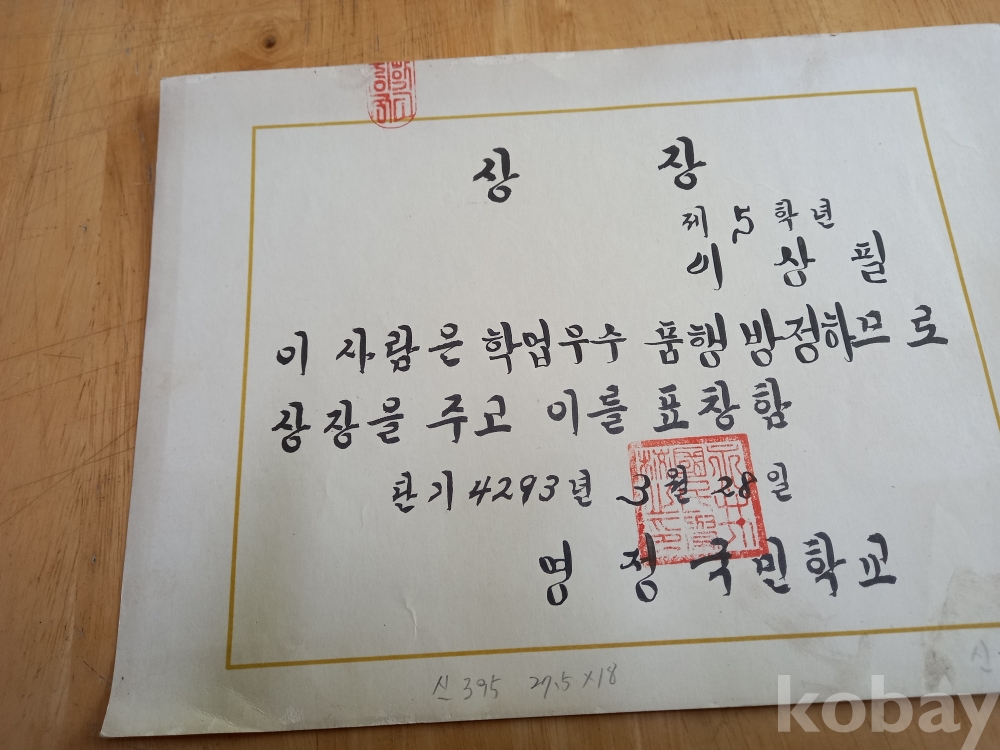 상 장
제 5 학년
이 상 필
이 사람은 학업우수 품행방정하므로
상장을 주고 이를 표창함
단기 4293년 3월 28일
명 정 국민학교
신 395 27.5 x 18
kobay